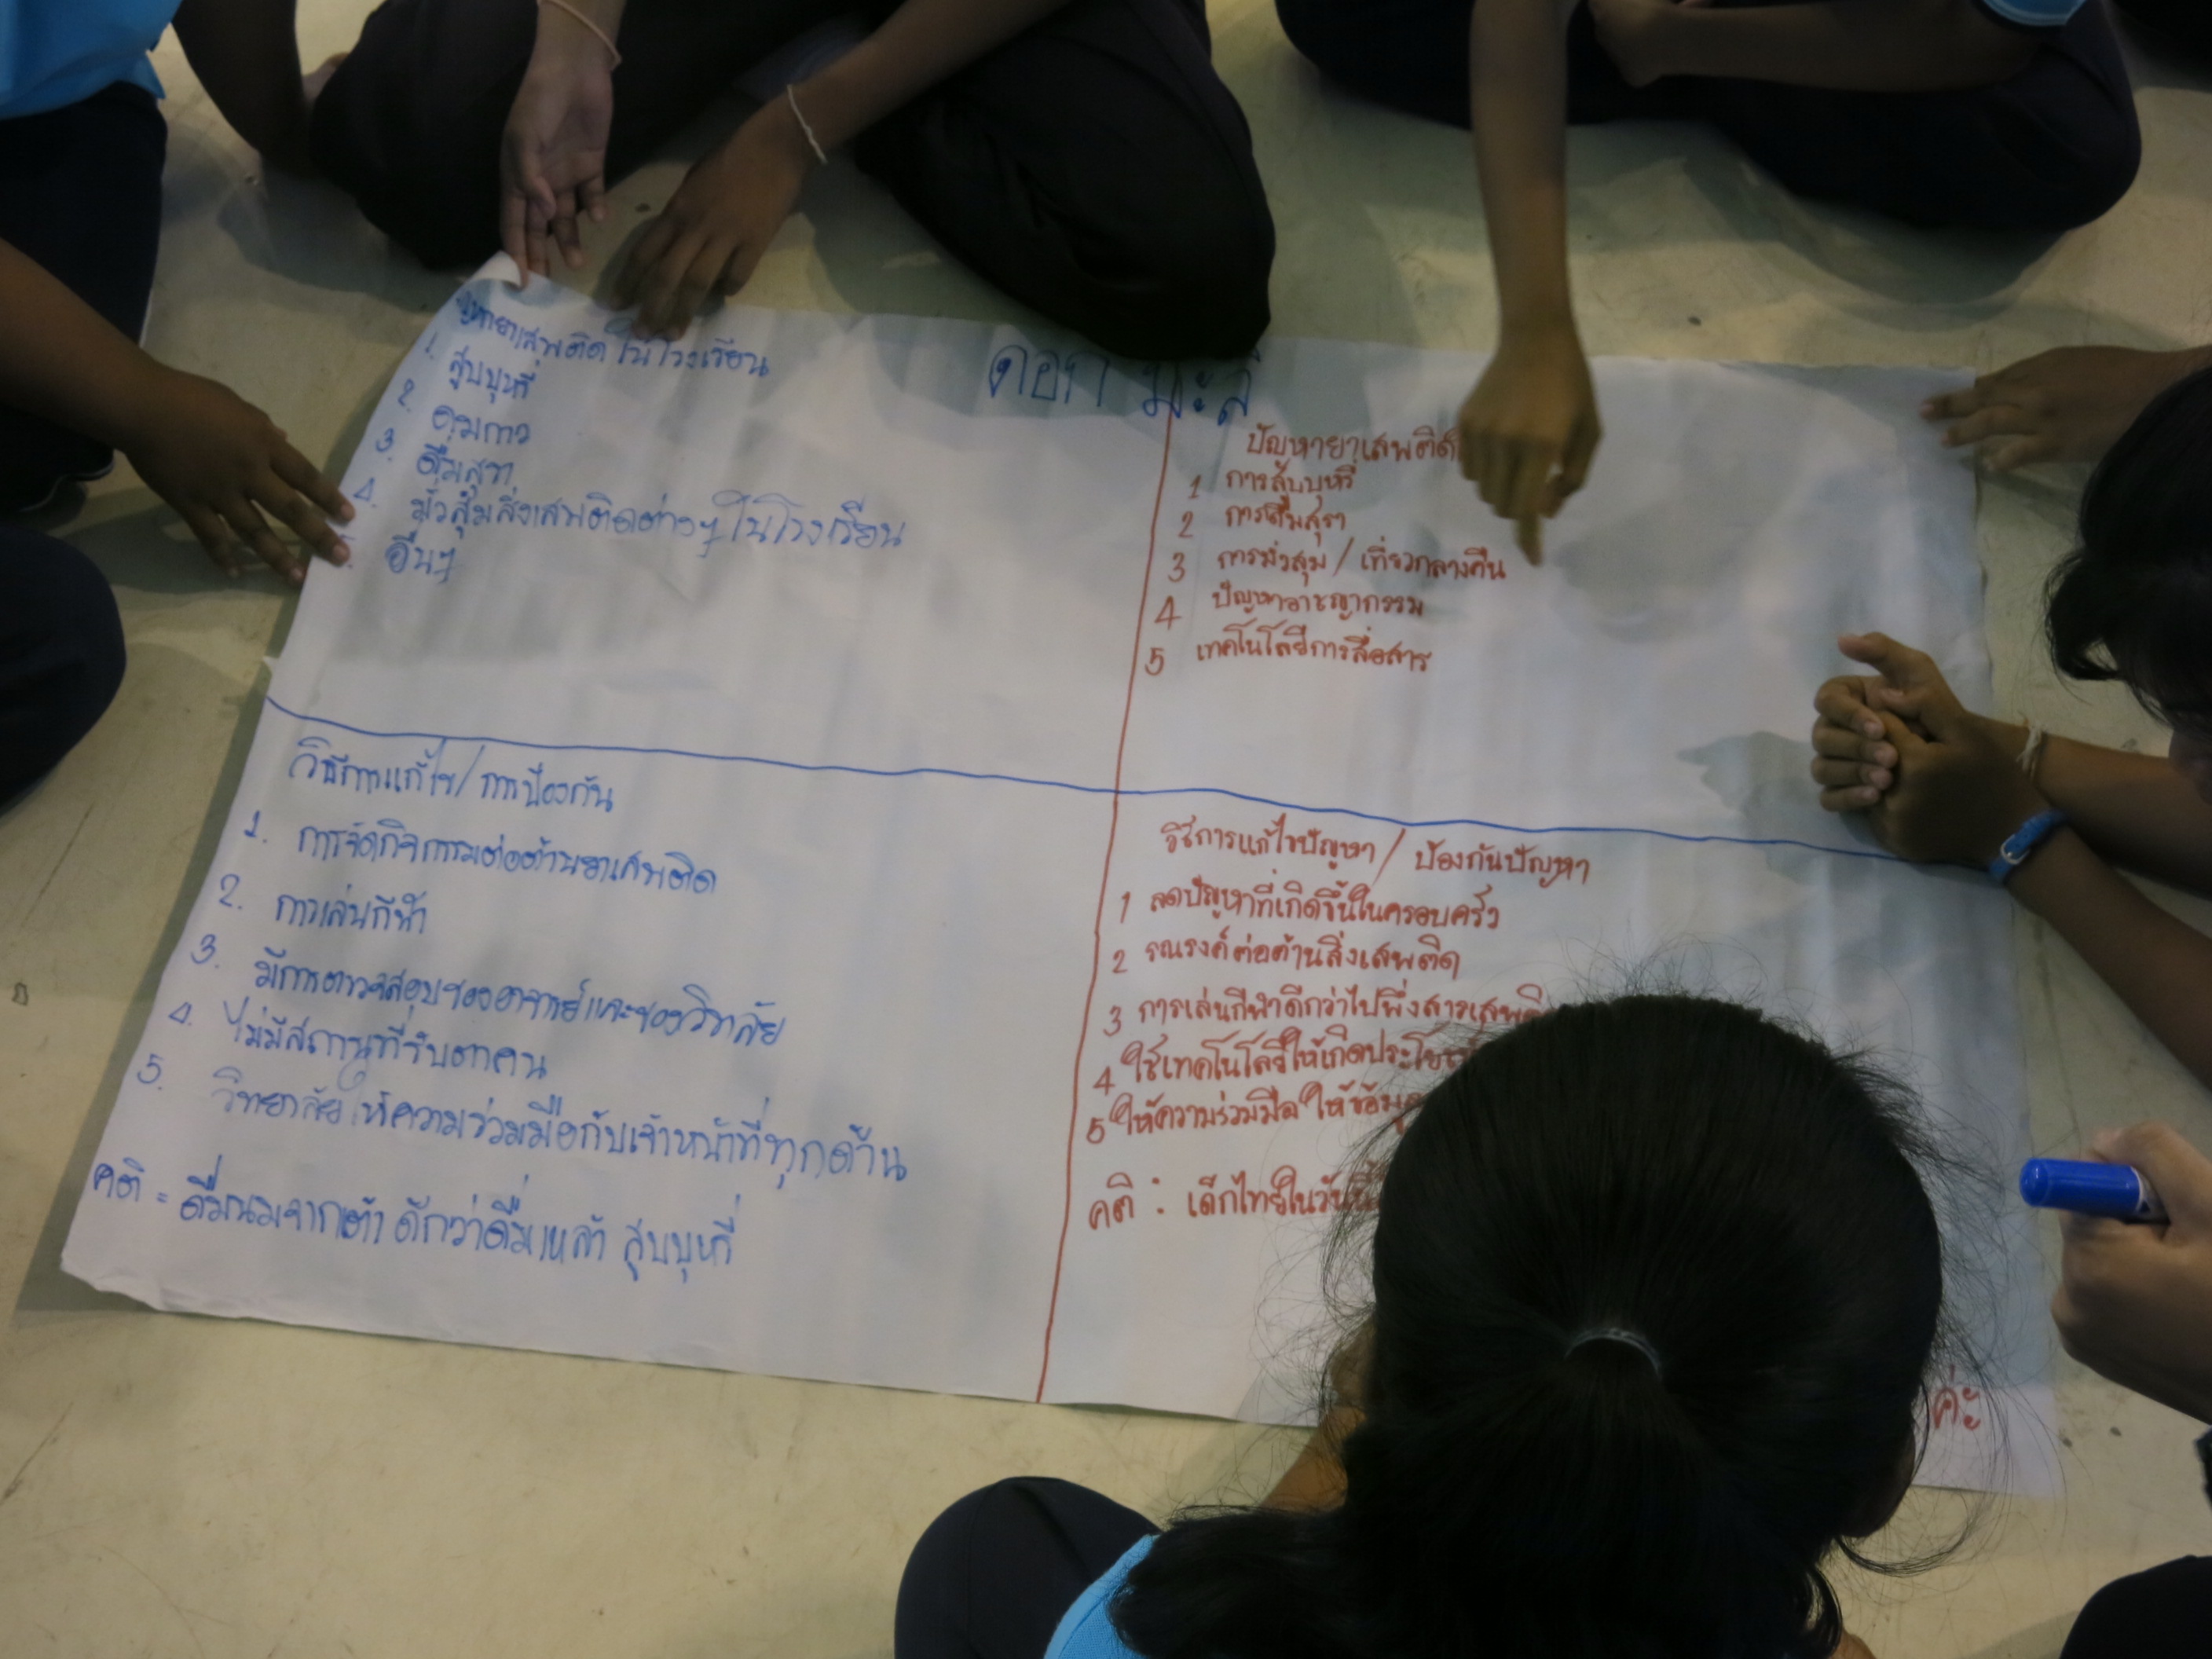 ดอกมะลิ
ปัญหายาเสพติดในโรงเรียน
1. สูบบุหรี่
2. ดมกาว
3. ดื่มสุรา
4. มั่วสุมสิ่งเสพติดต่างๆ ในโรงเรียน
อื่นๆ
ปัญหายาเสพติด
1 การสูบบุหรี่
2 การดื่มสุรา
3 การมั่วสุม / เที่ยวกลางคืน
4 ปัญหาอาชญากรรม
5 เทคโนโลยีการสื่อสาร
วิธีการแก้ไข/การป้องกัน
1. การจัดกิจกรรมต่อต้านยาเสพติด
2. การเล่นกีฬา
3. มีการตรวจสอบของอาจารย์และของวิทลัย
4. ไม่มีสถานที่
5. วิทยาลัยให้ความร่วมมือกับเจ้าหน้าที่ทุกด้าน
คติ = ดื่มนมจากเต้า ดีกว่าดื่มเหล้า สูบบุหรี่
วิธีการแก้ไขปัญหา / ป้องกันปัญหา
1 ลดปัญหาที่เกิดขึ้นในครอบครัว
2 รณรงค์ต่อต้านสิ่งเสพติด
3 การเล่นกีฬาดีกว่าไปพึ่งสารเสพติ
4 ใช้เทคโนโลยีให้เกิดประโย
5 ให้ความร่วมมือ ให้ข้อมูล
คติ : เด็กไทยในวันนี้
ค่ะ